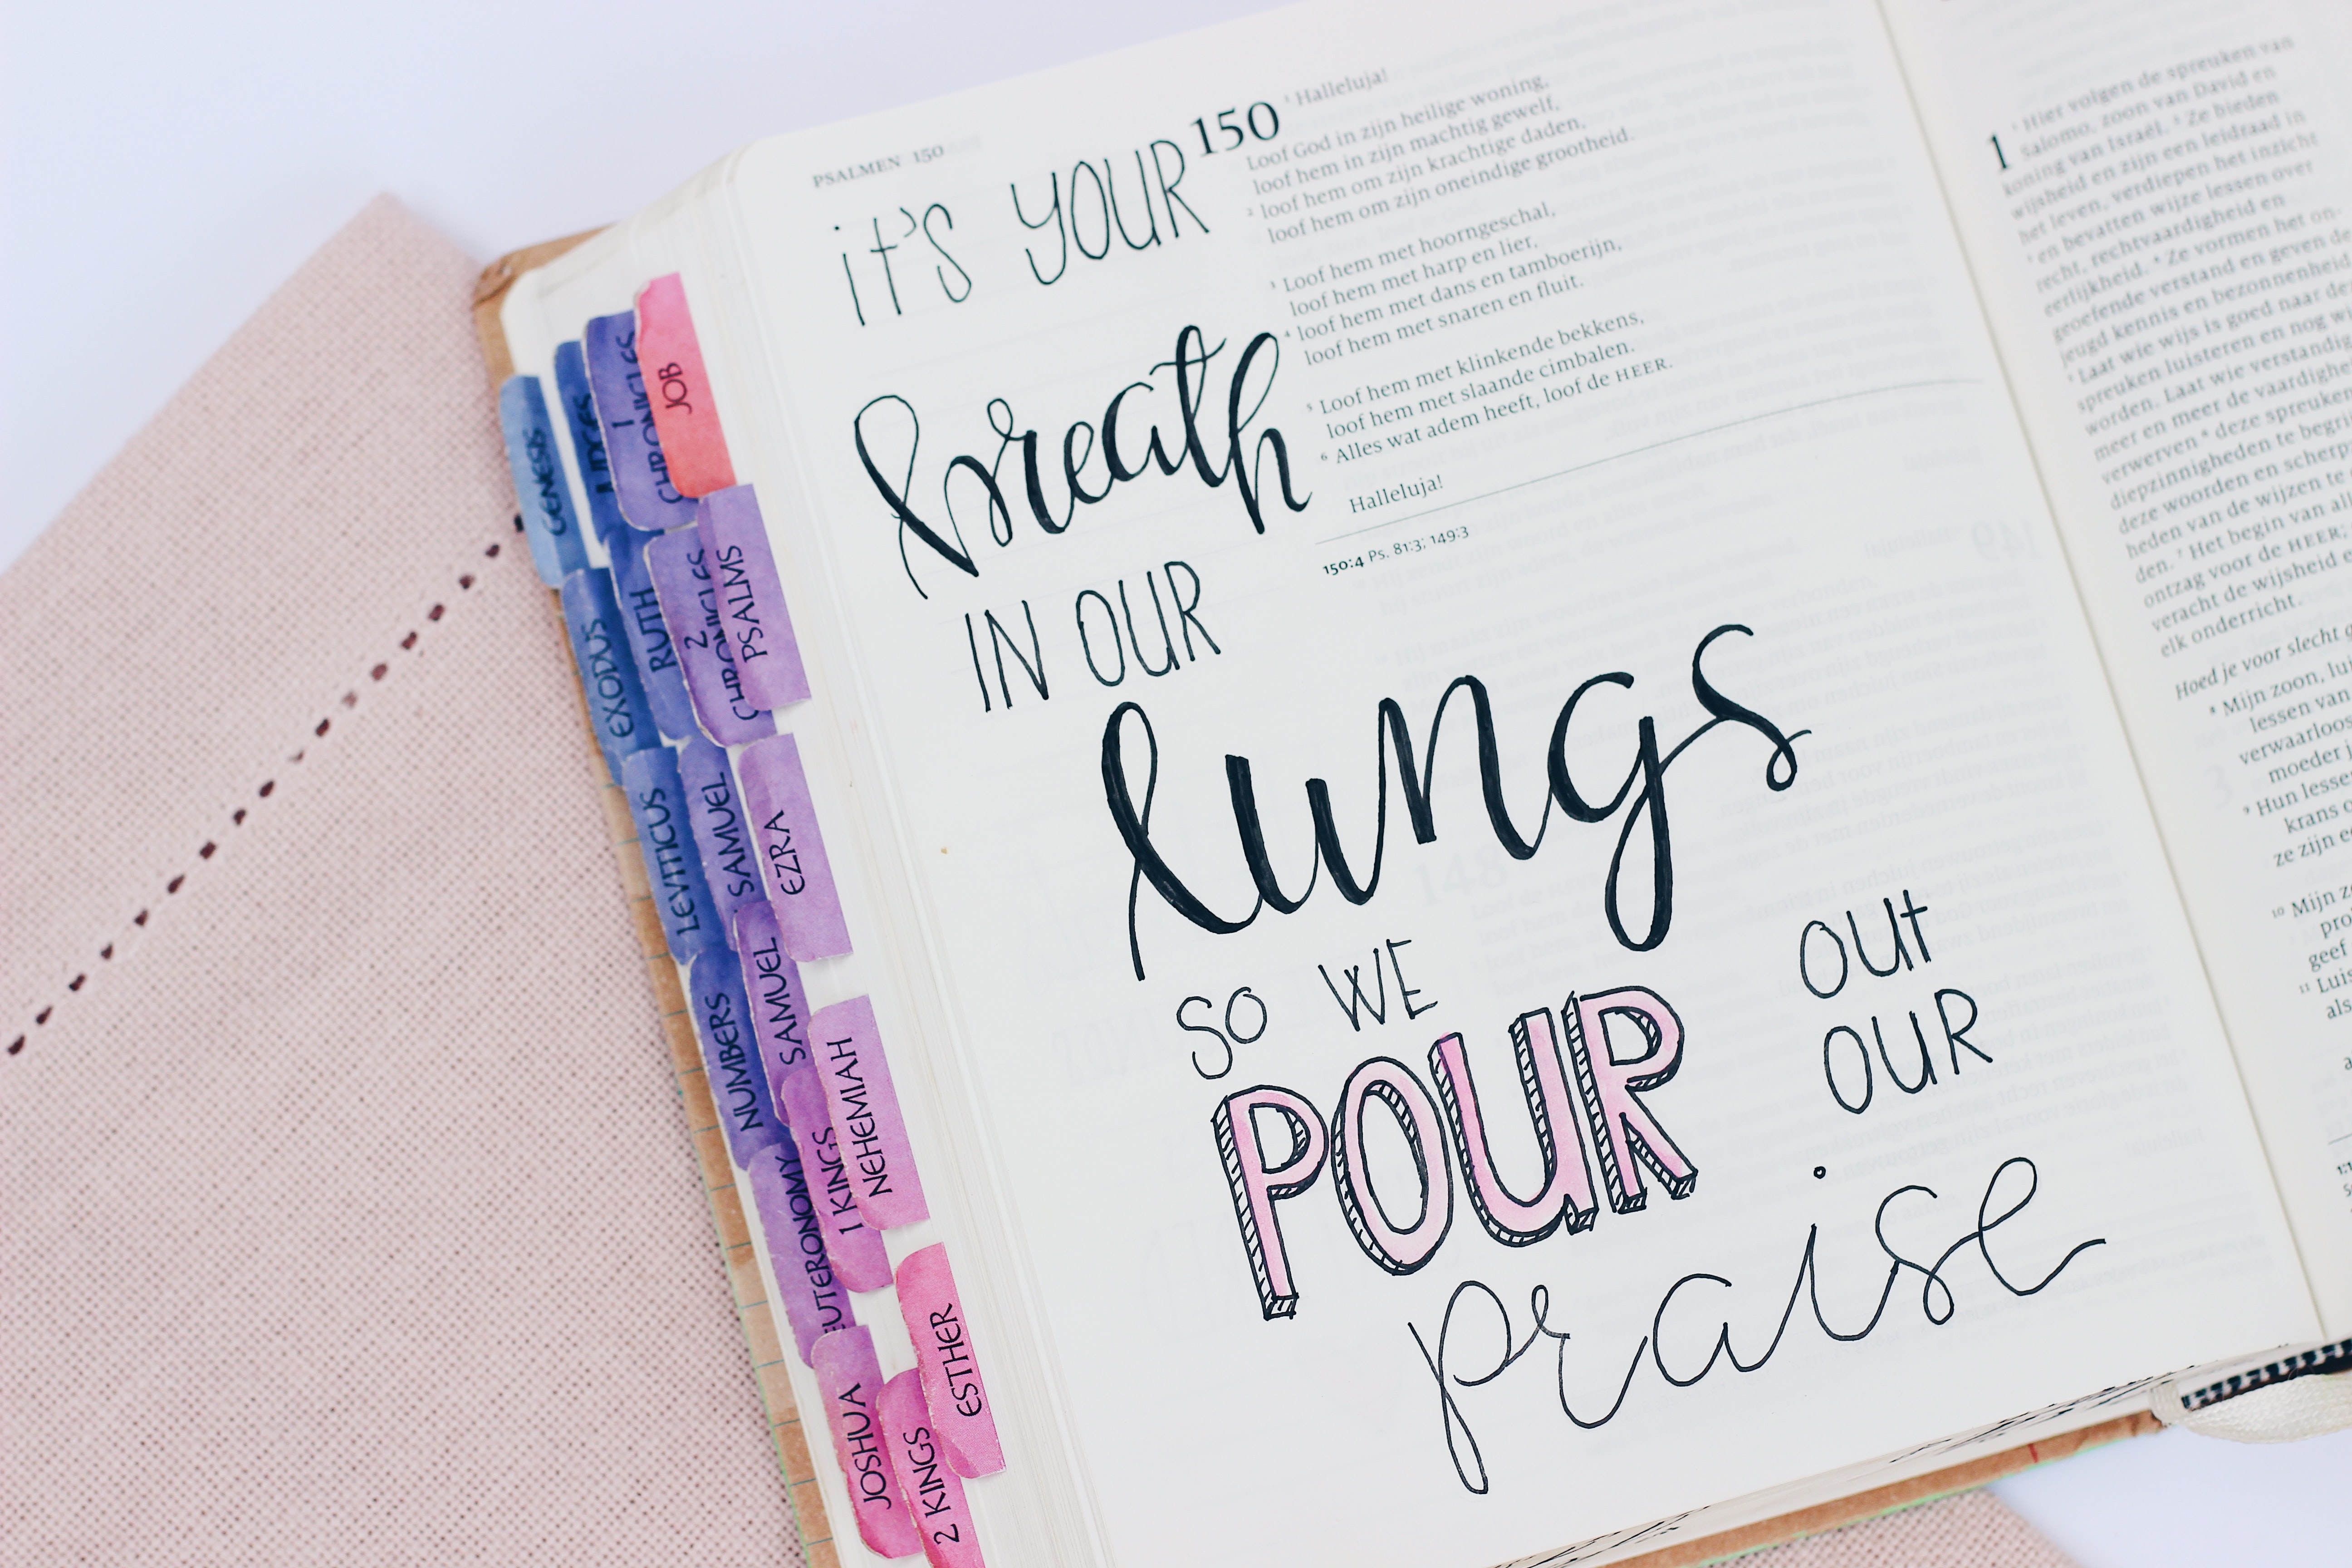 PSALMEN 150
it's YOUR
breath
IN OUR
lungs
SO WE
POUR
OUt
OUR
praise
150
¹ Halleluja!
Loof God in zijn heilige woning,
loof hem in zijn machtig gewelf,
² loof hem om zijn krachtige daden,
loof hem om zijn oneindige grootheid.
³ Loof hem met hoorngeschal,
loof hem met harp en lier,
⁴ loof hem met dans en tamboerijn,
loof hem met snaren en fluit.
⁵ Loof hem met klinkende bekkens,
loof hem met slaande cimbalen.
⁶ Alles wat adem heeft, loof de HEER.
Halleluja!
150:4 Ps. 81:3; 149:3
1
¹ Hier volgen de spreuken van
Salomo, zoon van David en
koning van Israël. ² Ze bieden
wijsheid en zijn een leidraad in
het leven, verdiepen het inzicht
³ en bevatten wijze lessen over
recht, rechtvaardigheid en
eerlijkheid. ⁴ Ze vormen het on-
geoefende verstand en geven de
jeugd kennis en bezonnenheid
⁵ Laat wie wijs is goed naar de
spreuken luisteren en nog w
worden. Laat wie verstandig
meer en meer de vaardighe
verwerven ⁶ deze spreuken
diepzinnigheden te begri
deze woorden en scherp
heden van de wijzen te
den. ⁷ Het begin van al
ontzag voor de HEER.
veracht de wijsheid e
elk onderricht.
Hoed je voor slecht g
⁸ Mijn zoon, lui
lessen van
verwaarloos
moeder j
⁹ Hun lesse
krans o
ze zijn e
¹⁰ Mijn z
pro
geef
¹¹ Luis
als
GENESIS
JUDGES
1 CHRONICLES
JOB
EXODUS
RUTH
2 CHRONICLES
PSALMS
LEVITICUS
SAMUEL
EZRA
NUMBERS
SAMUEL
NEHEMIAH
EUTERONOMY
1 KINGS
ESTHER
JOSHUA
2 KINGS